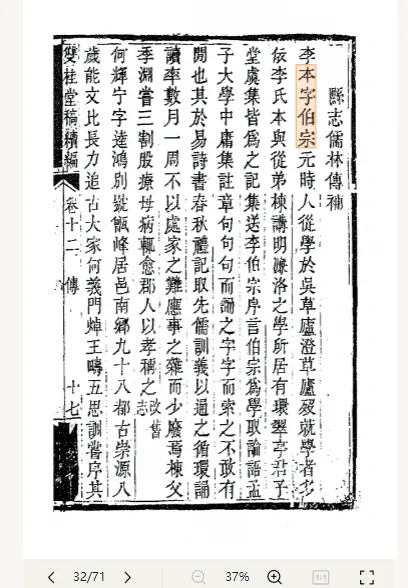 縣志儒林傳補
李本字伯宗元時人從學於吳草廬澄草廬歿就學者多
依李氏本與從弟棟講明濂洛之學所居有環翠亭君子
堂虞集皆為之記集送李伯宗序言伯宗為學取論語孟
子大學中庸集註章句句句而誦之字字而索之不敢有
閒也其於易詩書春秋禮記取先儒訓義以通之循環誦
讀率數月一周不以處家之難應事之雜而少廢焉棟父
季淵嘗三割股療母病輒愈郡人以孝稱之改舊志
何輝字逵鴻別號甑峰居邑南鄉九十八都古崇源八
歲能文比長力追古大家何義門焯王疇五思訓嘗序其
雙桂堂稿續編 卷十二 傳 十七
32/71
37%
1:1